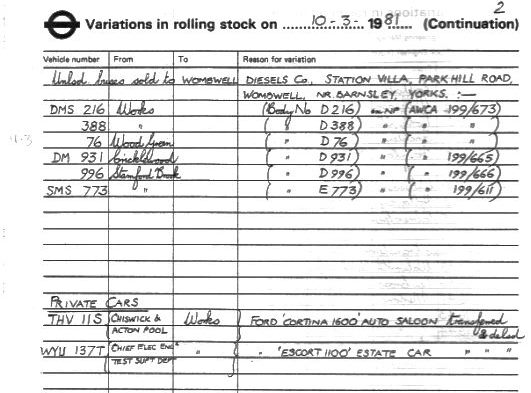 2
Variations in rolling stock on 10-3-1981 (Continuation)
Vehicle number From To Reason for variation
Unlsd buses sold to WOMBWELL DIESELS Co., STATION VILLA, PARKHILL ROAD,
WOMBWELL, NR. BARNSLEY, YORKS. :—
DMS 216 Works (Body No D216) (AWCA 199/673)
388 " ( " D388) " ( " " )
76 Wood Green ( " D76) " ( " " )
DM 931 Cricklewood ( " D931) " ( " 199/665)
996 Stamford Brook ( " D996) " ( " 199/666)
SMS 773 " ( " E773) " ( " 199/611)
PRIVATE CARS
THV 11S CHISWICK & ACTON POOL Works FORD 'CORTINA 1600' AUTO SALOON transferred & deled
WYU 137T CHIEF ELEC ENG TEST SUPT DEPT " " 'ESCORT 1100' ESTATE CAR " " "